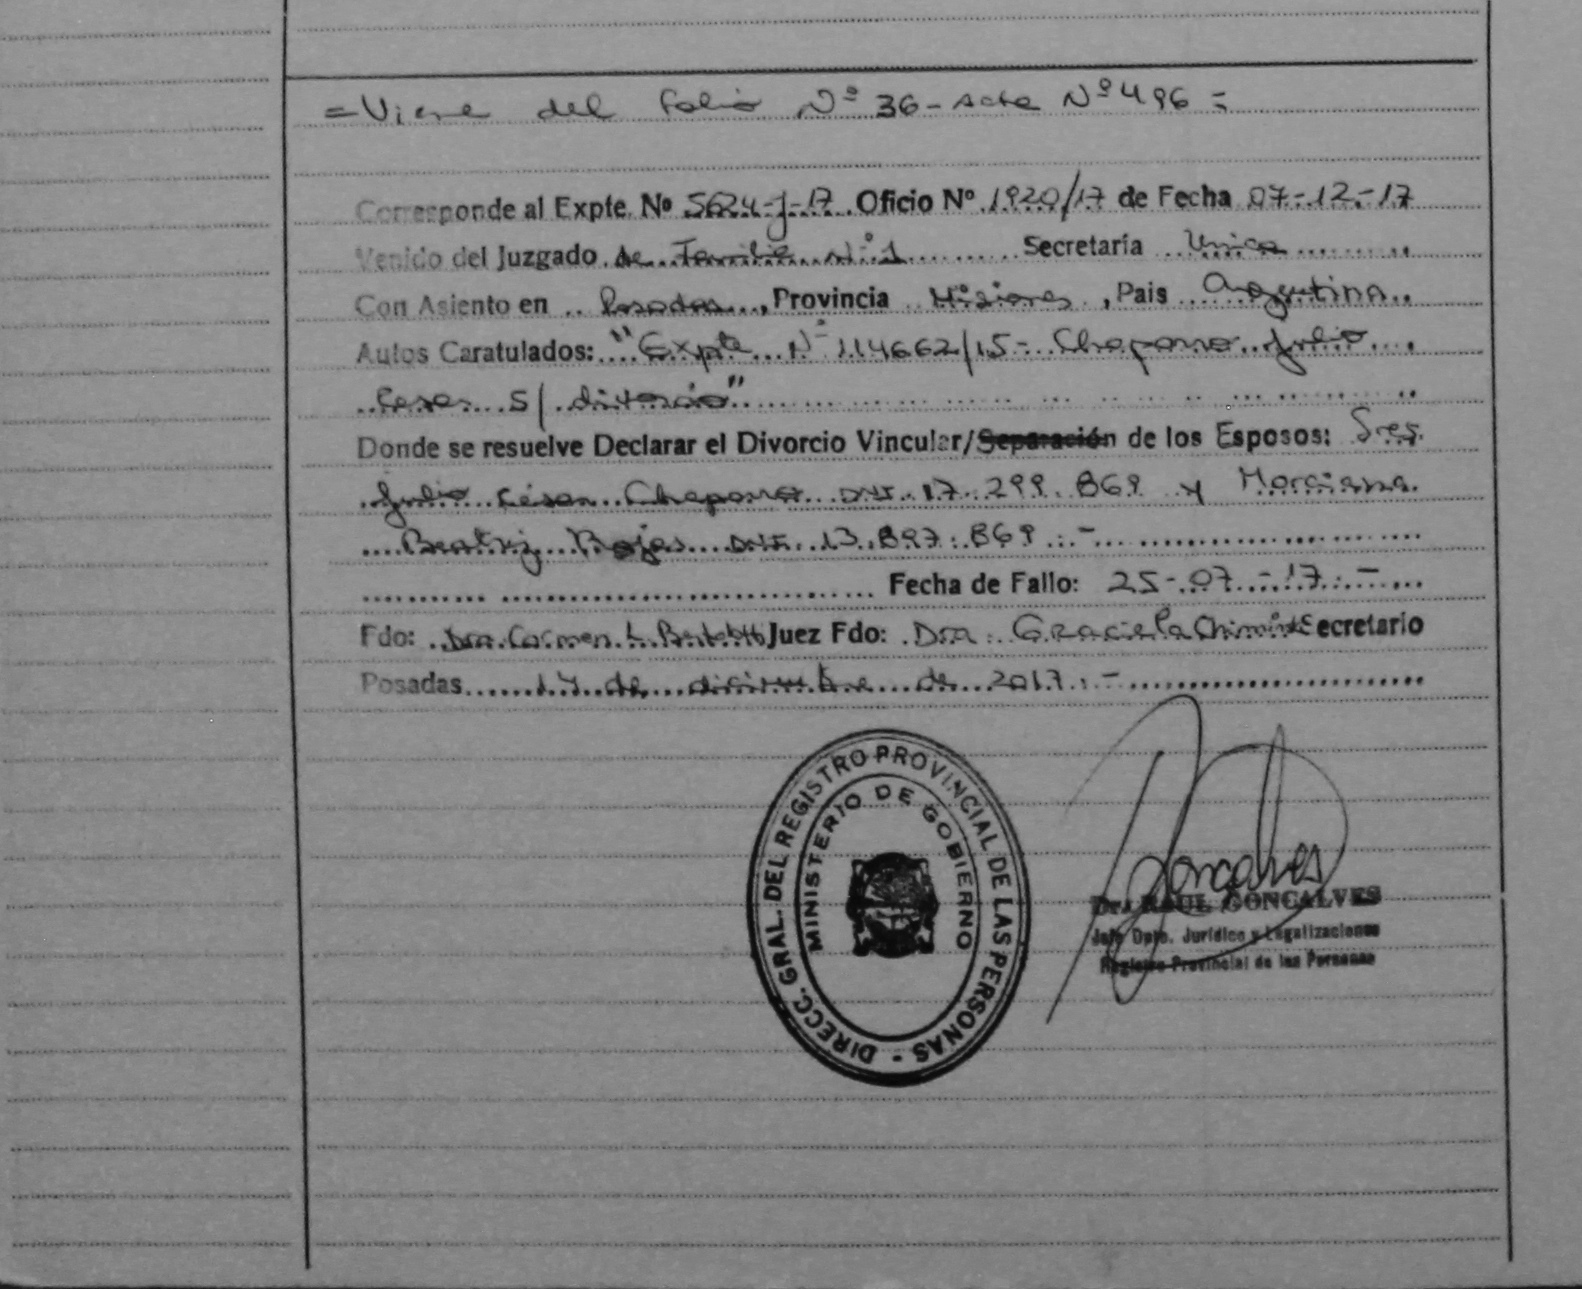 = Viene del folio Nº 36 - Acta Nº 496 =
Corresponde al Expte. Nº 5624-J-17 Oficio Nº 1920/17 de Fecha 07-12-17
Venido del Juzgado de Familia Nº 1 Secretaría Unica
Con Asiento en Posadas, Provincia Misiones, Pais Argentina
Autos Caratulados: "Expte Nº 114662/15 - Chaparro Julio
Cesar S/ divorcio"
Donde se resuelve Declarar el Divorcio Vincular/Separación de los Esposos: Sres.
Julio César Chaparro DNI 17.299.869 y Marciana
Beatriz Rojas DNI 13.897.869.-
Fecha de Fallo: 25-07-17.-
Fdo: Dra. Carmen L. Juez Fdo: Dra. Graciela Secretario
Posadas 14 de diciembre de 2017.-
DIRECC. GRAL. DEL REGISTRO PROVINCIAL DE LAS PERSONAS -
MINISTERIO DE GOBIERNO
Goncalves
Dr. RAUL GONCALVES
Jefe Dpto. Jurídico y Legalizaciones
Registro Provincial de las Personas